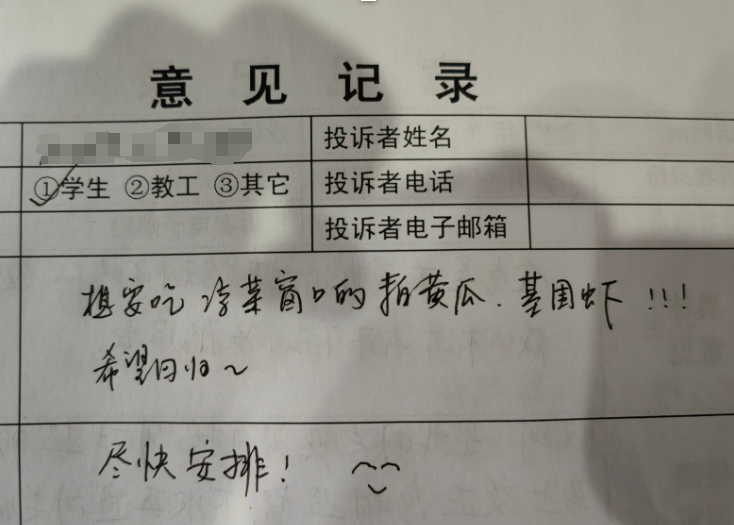 意见记录
投诉者姓名
①学生 ②教工 ③其它 投诉者电话
投诉者电子邮箱
想要吃冷菜窗口的拍黄瓜、基围虾!!!
希望回归~
尽快安排!